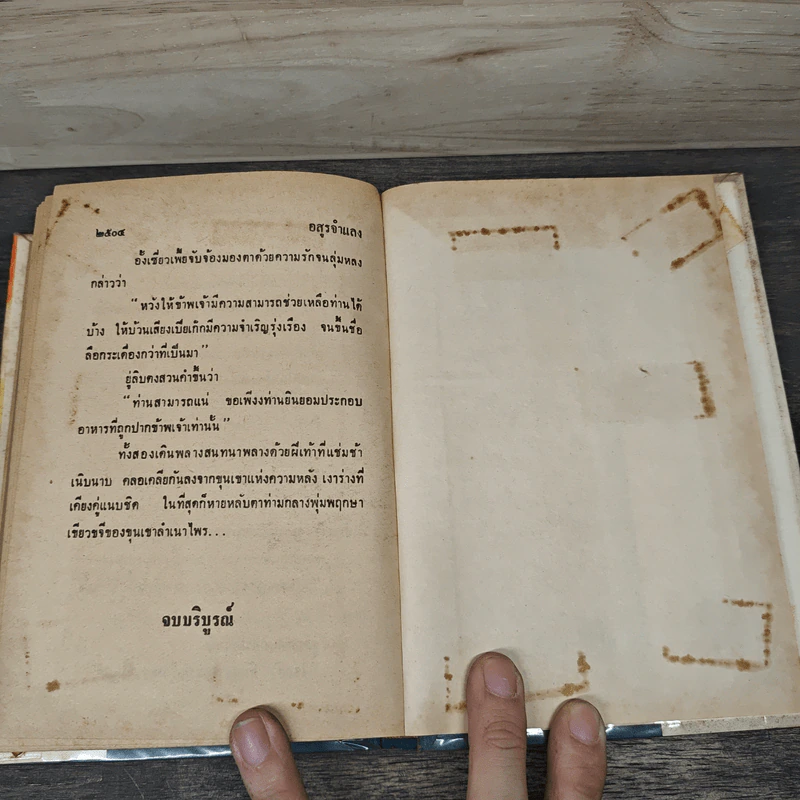 ๒๕๐๔ อสูรจำแลง
อั้งเซี่ยวเพ้ยจับจ้องมองตาด้วยความรักจนลุ่มหลง
กล่าวว่า
“หวังให้ข้าพเจ้ามีความสามารถช่วยเหลือท่านได้
บ้าง ให้บ้วนเสียงเบียเก็กมีความจำเริญรุ่งเรือง จนขึ้นชื่อ
ลือกระเดื่องกว่าที่เป็นมา”
ยู่ลิบคงสวนคำขึ้นว่า
“ท่านสามารถแน่ ขอเพียงท่านยินยอมประกอบ
อาหารที่ถูกปากข้าพเจ้าเท่านั้น”
ทั้งสองเดินพลางสนทนาพลางด้วยฝีเท้าที่แช่มช้า
เนิบนาบ คลอเคลียกันลงจากขุนเขาแห่งความหลัง เงาร่างที่
เคียงคู่แนบชิด ในที่สุดก็หายหลับตาท่ามกลางพุ่มพฤกษา
เขียวขจีของขุนเขาลำเนาไพร...
จบบริบูรณ์